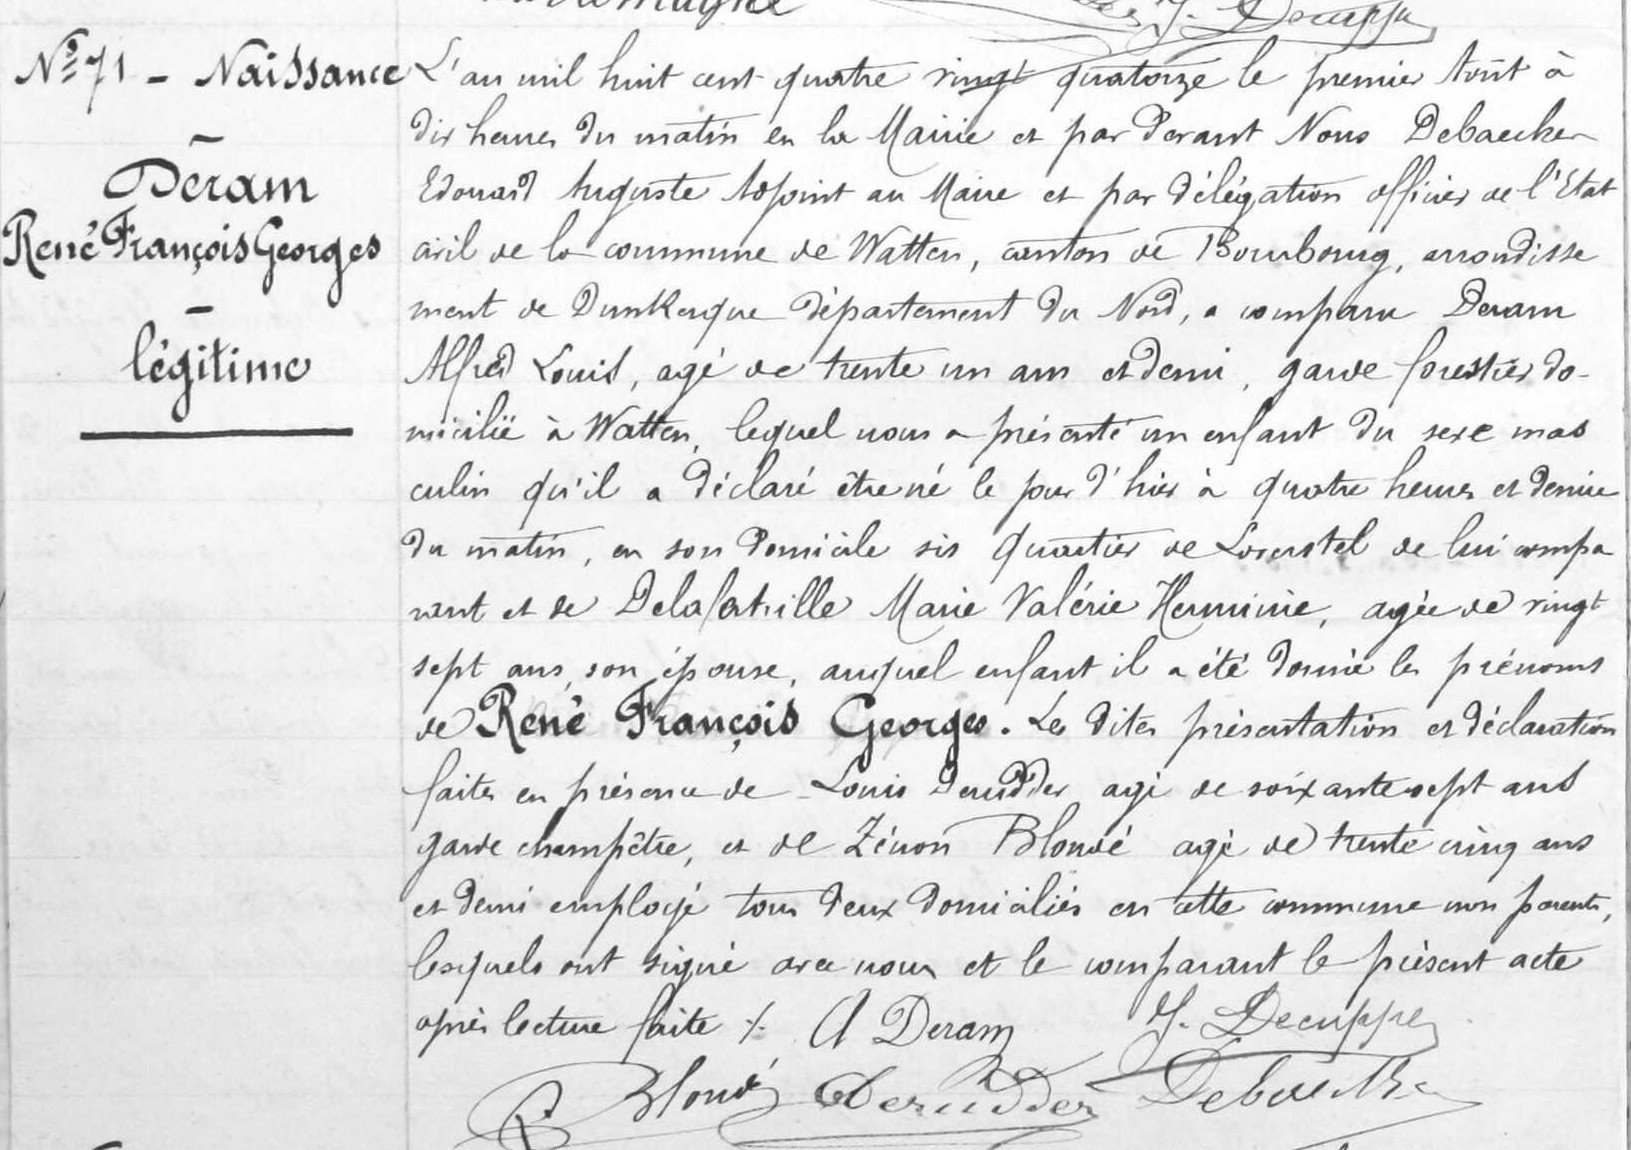 J. Decuppe
Nº 71 - Naissance
Deram
René François Georges
légitime
L'an mil huit cent quatre vingt quatorze le premier Août à
dix heures du matin en la Mairie et par devant Nous Debaecker
Edouard Auguste Adjoint au Maire et par délégation officier de l'Etat
civil de la commune de Watten, canton de Bourbourg, arrondisse
ment de Dunkerque département du Nord, a comparu Deram
Alfred Louis, agé de trente un ans et demi, garde forestier do-
micilié à Watten, lequel nous a présenté un enfant du sexe mas
culin qu'il a déclaré être né le jour d'hier à quatre heures et demie
du matin, en son domicile sis quartier de de lui compa
rant et de Marie Valérie Herminie, agée de vingt
sept ans, son épouse, auquel enfant il a été donné les prénoms
de René François Georges. Les dites présentation et déclaration
faites en présence de Louis Derudder agé de soixante sept ans
garde champêtre, et de Zénon Blondé agé de trente cinq ans
et demi employé tous deux domiciliés en cette commune non parents,
lesquels ont signé avec nous et le comparant le présent acte
après lecture faite ./. A Deram J. Decuppe
Blondé Derudder Debaecker